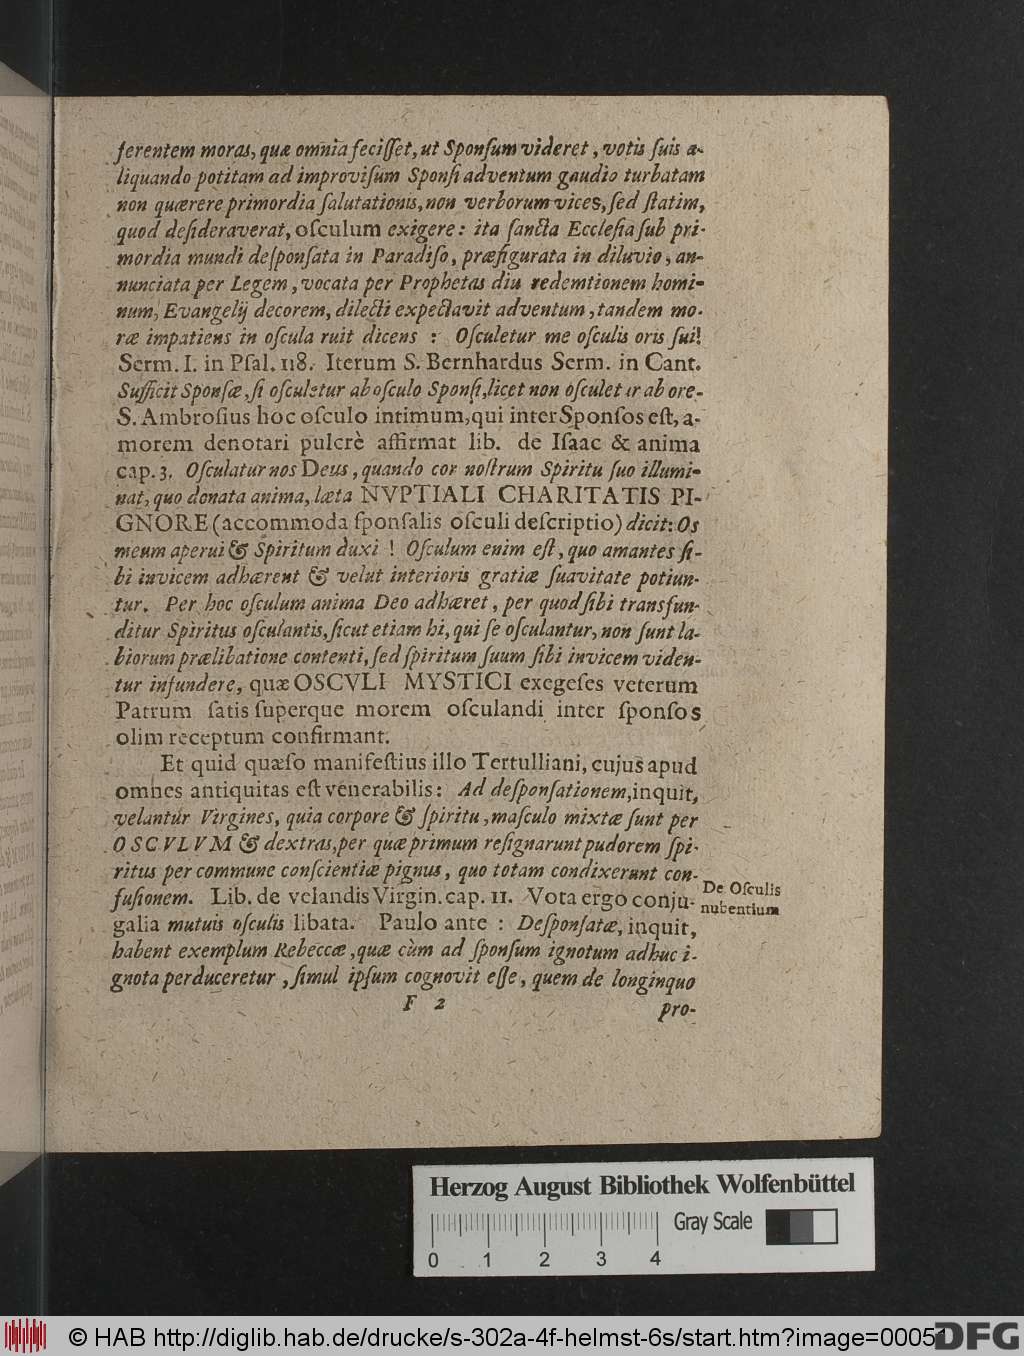 ferentem moras, quæ omnia feciſſet, ut Sponſum videret, votis ſuis a-
liquando potitam ad improviſum Sponſi adventum gaudio turbatam
non quærere primordia ſalutationis, non verborum vices, ſed ſtatim,
quod deſideraverat, oſculum exigere: ita ſancta Eccleſia ſub pri-
mordia mundi deſponſata in Paradiſo, præfigurata in diluvio, an-
nunciata per Legem, vocata per Prophetas diu redemtionem homi-
num, Evangelij decorem, dilecti expectavit adventum, tandem mo-
ræ impatiens in oſcula ruit dicens : Oſculetur me oſculis oris ſui!
Serm. I. in Pſal. 118. Iterum S. Bernhardus Serm. in Cant.
Sufficit Sponſæ, ſi oſculetur ab oſculo Sponſi, licet non oſculetur ab ore-
S. Ambroſius hoc oſculo intimum, qui inter Sponſos eſt, a-
morem denotari pulcrè affirmat lib. de Iſaac & anima
cap. 3. Oſculatur nos Deus, quando cor noſtrum Spiritu ſuo illumi-
nat, quo donata anima, læta NVPTIALI CHARITATIS PI-
GNORE (accommoda ſponſalis oſculi deſcriptio) dicit: Os
meum aperui & Spiritum duxi ! Oſculum enim eſt, quo amantes ſi-
bi invicem adhærent & velut interioris gratiæ ſuavitate potiun-
tur. Per hoc oſculum anima Deo adhæret, per quod ſibi transfun-
ditur Spiritus oſculantis, ſicut etiam hi, qui ſe oſculantur, non ſunt la-
biorum prælibatione contenti, ſed ſpiritum ſuum ſibi invicem viden-
tur infundere, quæ OSCVLI MYSTICI exegeſes veterum
Patrum ſatis ſuperque morem oſculandi inter ſponſos
olim receptum confirmant.
Et quid quæſo manifeſtius illo Tertulliani, cujus apud
omnes antiquitas eſt venerabilis: Ad deſponſationem, inquit,
velantur Virgines, quia corpore & ſpiritu, maſculo mixtæ ſunt per
OSCVLVM & dextras, per quæ primum reſignarunt pudorem ſpi-
ritus per commune conſcientiæ pignus, quo totam condixerunt con-
fuſionem. Lib. de velandis Virgin. cap. 11. Vota ergo conju-
galia mutuis oſculis libata. Paulo ante : Deſponſatæ, inquit,
habent exemplum Rebeccæ, quæ cùm ad ſponſum ignotum adhuc i-
gnota perduceretur, ſimul ipſum cognovit eſſe, quem de longinquo
F 2 pro-
De Oſculis
nubentium
Herzog August Bibliothek Wolfenbüttel
Gray Scale
0 1 2 3 4
© HAB http://diglib.hab.de/drucke/s-302a-4f-helmst-6s/start.htm?image=00051
DFG